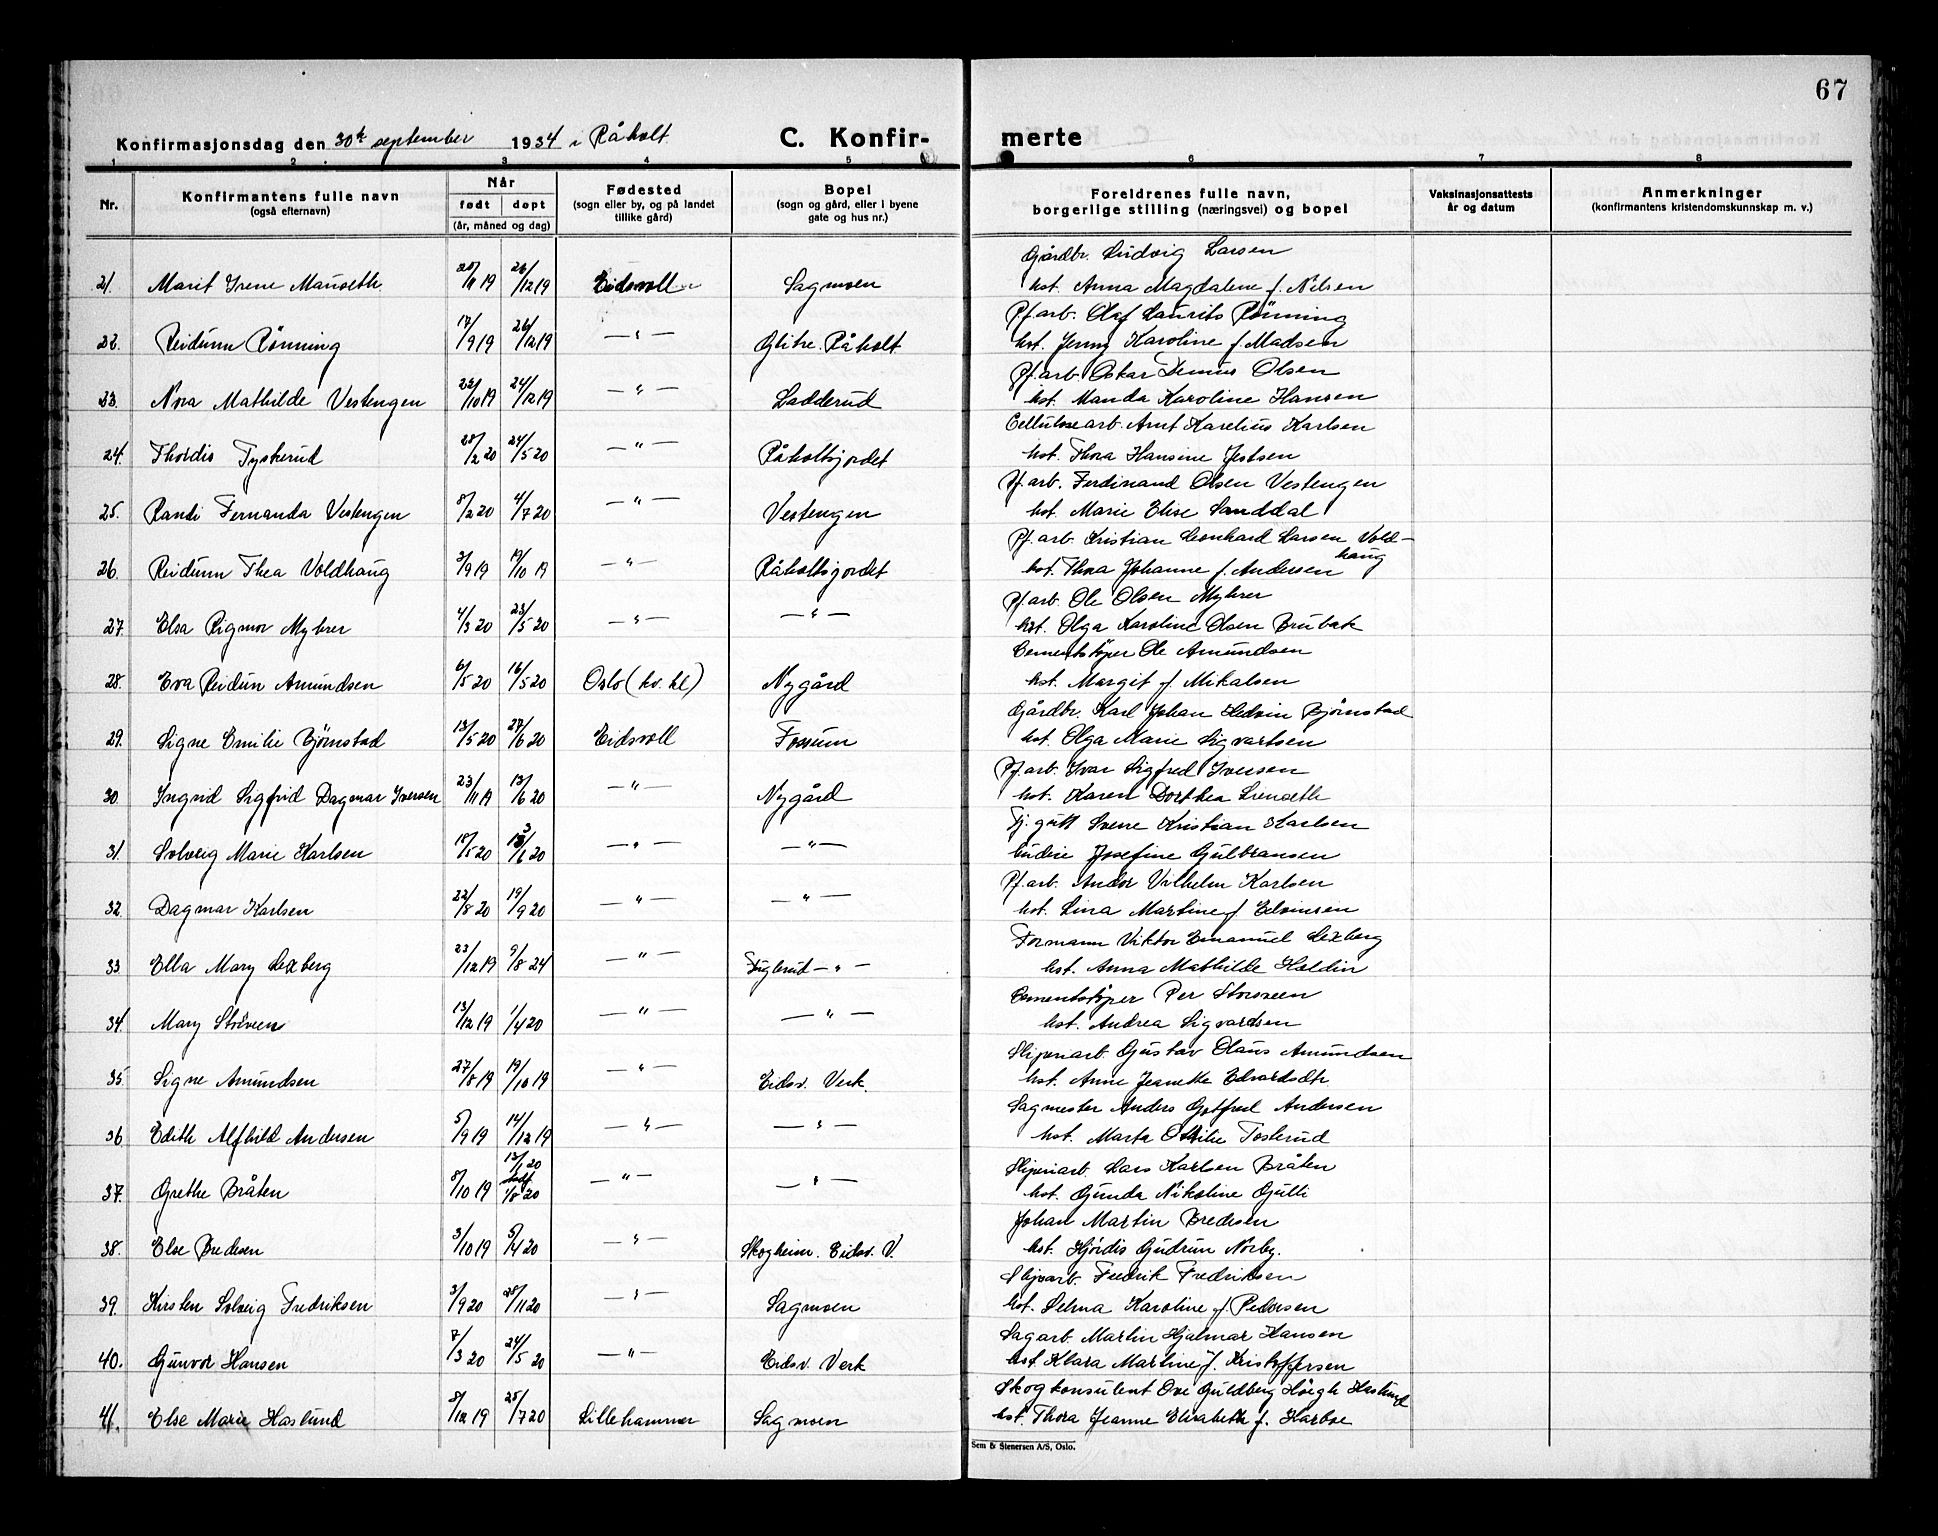 67
Konfirmasjonsdag den 30te september 1934 i Råholt C. Konfir- merte
1 2 3 4 5 6 7 8
Nr. Konfirmantens fulle navn (også efternavn) Når født døpt (år, måned og dag) Fødested (sogn eller by, og på landet tillike gård) Bopel (sogn og gård, eller i byene gate og hus nr.) Foreldrenes fulle navn, borgerlige stilling (næringsvei) og bopel Vaksinasjonsattests år og datum Anmerkninger (konfirmantens kristendomskunnskap m. v.)
Gårdbr. Ludvig Larsen
21. Marit Irene Mauseth 19 26/12 19 Eidsvoll Sagmoen hst. Anna Magdalene f. Nilsen
Pf.arb. Olaf Laurits Rönning
22. Reidunn Rönning 17/9 19 26/12 19 — " — Glitre. Råholt hst. Jenny Karoline f. Madsen
Pf.arb. Oskar Olsen
23. Nora Mathilde Vestengen /10 19 24/12 19 — " — Ladderud hst. Manda Karoline Hansen
Cellulosearb. Arnt Karelius Karlsen
24. Thordis Tyskerud 28/2 20 24/5 20 — " — Råholtsjordet hst. Thora Hansine
Pf.arb. Ferdinand Olsen Vestengen
25. Randi Fernanda Vestengen 8/2 20 4/7 20 — " — Vestengen hst. Marie Elise Sanddal
Pf.arb. Kristian Leonhard Larsen Vold-
26. Reidunn Thea Voldhaug 3/9 19 19/10 19 — " — Råholtsjordet hst. Thora Johanne f. Andersen haug
Pf.arb. Ole Olsen Myhrer
27. Elsa Rigmor Myhrer 4/3 20 23/5 20 — " — — " — hst. Olga Karoline Olsen Brubak
Cementstöper Ole Amundsen
28. Eva Reidun Amundsen 6/5 20 16/5 20 Oslo (kv. kl) Nygård hst. Margit f. Mikalsen
Gårdbr. Karl Johan Bjørnstad
29. Signe Emilie Bjørnstad 13/5 20 27/6 20 Eidsvoll Fossum hst. Olga Marie Sigvartsen
Pf.arb. Ivar Sigfred Iversen
30 Ingrid Sigfrid Dagmar Iversen 23/11 19 13/6 20 — " — Nygård hst. Karen Dorthea
Tj.gutt Sverre Kristian Karlsen
31. Solveig Marie Karlsen 18/5 20 20 — " — — " — Josefine Gulbransen
Pf.arb. Andor Vilhelm Karlsen
32. Dagmar Karlsen 22/8 20 19/9 20 — " — — " — hst. Lina Martine f. Edvinsen
Formann Viktor Emanuel Lexberg
33. Ella Mary Lexberg 23/12 19 9/8 24 — " — — " — hst. Anna Mathilde Haldin
Cementstöper Per Storveen
34. Mary Storveen 13/12 19 1/4 20 — " — — " — hst. Andrea Sigvardsen
Sliperiarb. Gustav Olaus Amundsen
35. Signe Amundsen 27/8 19 19/10 19 — " — Eidsv. Verk. hst. Anne Jeanette Edvardsdtr
Sagmester Anders Gotfred Andersen
36 Edith Alfhild Andersen 5/9 19 14/12 19 — " — — " — hst. Marta Otilie Tosterud
13/1 20 Sliperiarb. Lars Karlsen Bråten
37. Grethe Bråten 8/10 19 1/8 20 — " — — " — hst. Gunda Nikoline Gulli
Johan Martin Bredesen
38. Else Bredesen 3/10 19 5/4 20 — " — Skogheim. Eidsv. V. hst. Hjördis Gudrun Norby.
Sliparb. Fredrik Fredriksen
39. Kirsten Solveig Fredriksen 3/9 20 28/11 20 — " — Sagmoen hst. Selma Karoline f. Pedersen
Sagarb. Martin Hjalmar Hansen
40. Gunvor Hansen 7/3 20 24/5 20 — " — Eidsv. Verk hst. Klara Martine f. Kristoffersen
Skogkonsulent Ove Guldberg Høegh Haslund
41. Else Marie Haslund 8/12 19 25/7 20 Lillehammer Sagmoen hst. Thora Jeanne Elisabeth f. Harboe
Sem & Stenersen A/S, Oslo.